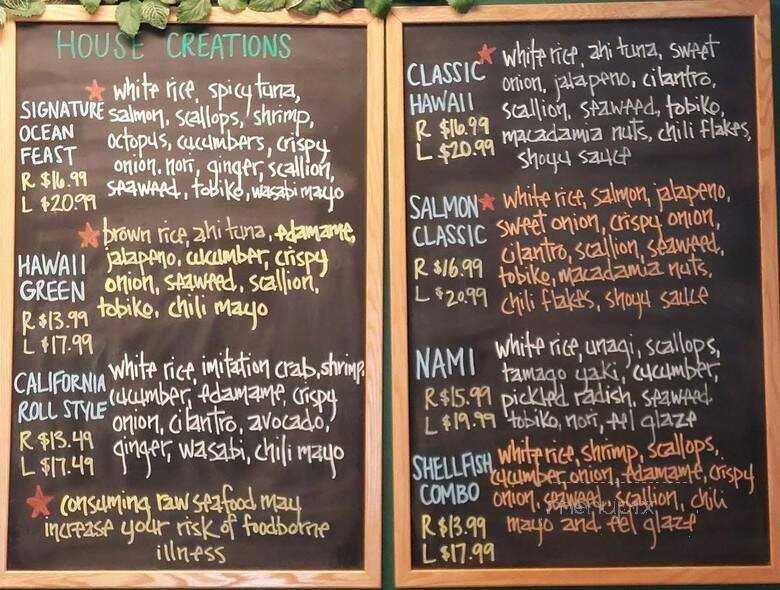 HOUSE CREATIONS
SIGNATURE OCEAN FEAST
R $16.99
L $20.99
white rice, spicy tuna,
salmon, scallops, shrimp,
octopus, cucumbers, crispy
onion, nori, ginger, scallion,
seaweed, tobiko, wasabi mayo
HAWAII GREEN
R $13.99
L $17.99
brown rice, ahi tuna, edamame,
jalapeno, cucumber, crispy
onion, seaweed, scallion,
tobiko, chili mayo
CALIFORNIA ROLL STYLE
R $13.49
L $17.49
white rice, imitation crab, shrimp,
cucumber, edamame, crispy
onion, cilantro, avocado,
ginger, wasabi, chili mayo
consuming raw seafood may
increase your risk of foodborne
illness
CLASSIC HAWAII
R $16.99
L $20.99
white rice, ahi tuna, sweet
onion, jalapeno, cilantro,
scallion, seaweed, tobiko,
macadamia nuts, chili flakes,
shoyu sauce
SALMON CLASSIC
R $16.99
L $20.99
white rice, salmon, jalapeno,
sweet onion, crispy onion,
cilantro, scallion, seaweed,
tobiko, macadamia nuts,
chili flakes, shoyu sauce
NAMI
R $15.99
L $19.99
white rice, unagi, scallops,
tamago yaki, cucumber,
pickled radish, seaweed
tobiko, nori, eel glaze
SHELLFISH COMBO
R $13.99
L $17.99
white rice, shrimp, scallops,
cucumber, onion, edamame, crispy
onion, seaweed, scallion, chili
mayo and eel glaze
menupix